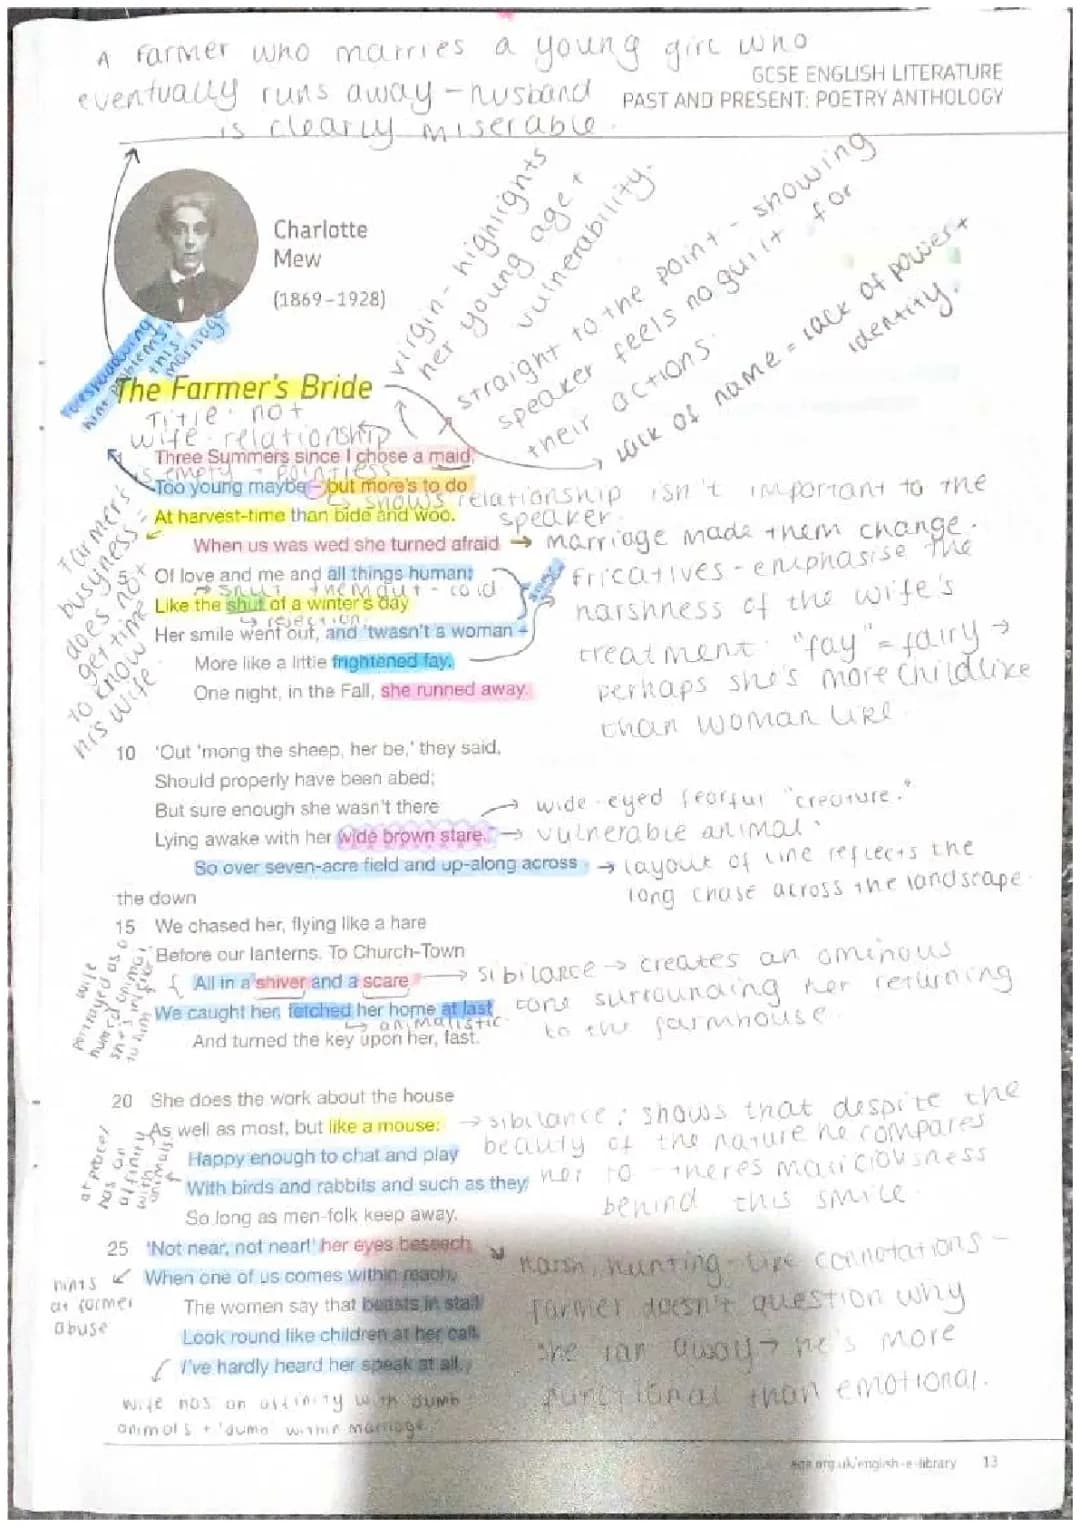 A Farmer who marries a young girl who
eventually runs away - husband
is clearly miserable.
GCSE ENGLISH LITERATURE
PAST AND PRESENT: POETRY ANTHOLOGY
Charlotte
Mew
(1869–1928)
virgin - highlights
her young age +
vulnerability.
straight to the point - showing
speaker feels no guilt for
their actions.
lack of name = lack of power +
identity.
foreshadowing
hint problems
this
marriage
The Farmer's Bride
Title: not
wife - relationship
is empty + pointless
Three Summers since I chose a maid,
Too young maybe – but more's to do
shows relationship isn't important to the
speaker.
At harvest-time than bide and woo.
When us was wed she turned afraid
marriage made them change.
5 Of love and me and all things human;
shut them out - cold
Like the shut of a winter's day
rejection
Her smile went out, and 'twasn't a woman –
More like a little frightened fay.
One night, in the Fall, she runned away.
farmer's
busyness =
does not
get time
to know
his wife
fricatives - emphasise the
harshness of the wife's
treatment. "fay" = fairy →
perhaps she's more childlike
than woman like.
10 'Out 'mong the sheep, her be,' they said,
Should properly have been abed;
But sure enough she wasn't there
Lying awake with her wide brown stare.
wide-eyed fearful "creature."
vulnerable animal.
So over seven-acre field and up-along across
the down
layout of line reflects the
long chase across the landscape.
15 We chased her, flying like a hare
Before our lanterns. To Church-Town
All in a shiver and a scare
We caught her, fetched her home at last
animalistic
And turned the key upon her, fast.
wife
portrayed as a
hunted animal
she's inferior
to him
sibilance → creates an ominous
tone surrounding her returning
to the farmhouse.
20 She does the work about the house
As well as most, but like a mouse:
Happy enough to chat and play
With birds and rabbits and such as they,
So long as men-folk keep away.
has an
affinity
with
animals
sibilance: shows that despite the
beauty of the nature he compares
her to - theres maliciousness
behind this smile.
25 'Not near, not near!' her eyes beseech
When one of us comes within reach.
The women say that beasts in stall
Look round like children at her call.
I've hardly heard her speak at all.
hints
at farmer
abuse
harsh, hunting-like connotations -
farmer doesn't question why
she ran away → he's more
functional than emotional.
wife has an affinity with dumb
animals + 'dumb' within marriage.
aqa.org.uk/english-e-library 13